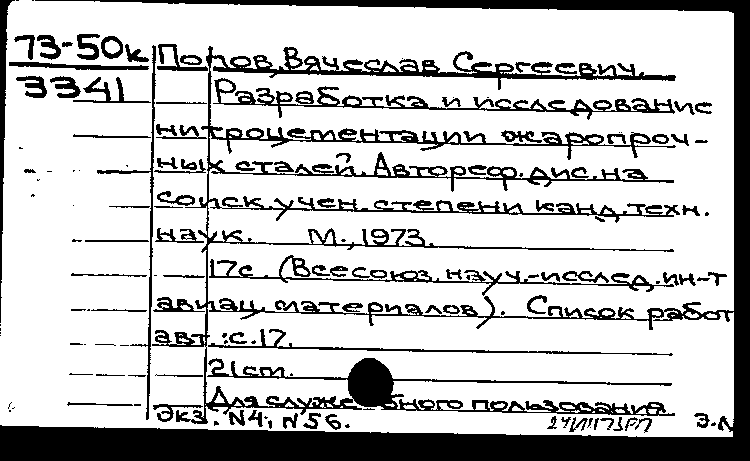 73-50к Попов, Вячеслав Сергеевич.
3341 Разработка и исследование
нитроцементации жаропроч-
ных сталей. Автореф. дис. на
соиск. учен. степени канд. техн.
наук. М., 1973.
17с. (Всесоюз. науч.-исслед. ин-т
авиац. материалов). Список работ
авт.: с. 17.
21 cm.
Для служебного пользования
Экз. N4; N56.
Э.Л